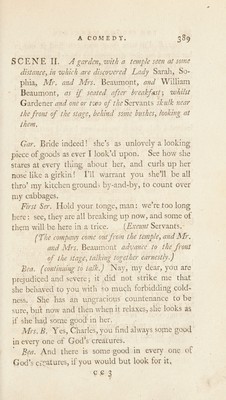 A COMEDY. 389
SCENE II. A garden, with a temple seen at some
distance, in which are discovered Lady Sarah, So-
phia, Mr. and Mrs. Beaumont, and William
Beaumont, as if seated after breakfast; whilst
Gardener and one or two of the Servants skulk near
the front of the stage, behind some bushes, looking at
them.
Gar. Bride indeed! she's as unlovely a looking
piece of goods as ever I look'd upon. See how she
stares at every thing about her, and curls up her
nose like a girkin! I'll warrant you she'll be all
thro' my kitchen ground, by-and-by, to count over
my cabbages.
First Ser. Hold your tonge, man: we're too long
here: see, they are all breaking up now, and some of
them will be here in a trice. (Exeunt Servants.
(The company come out from the temple, and Mr.
and Mrs. Beaumont advance to the front
of the stage, talking together earnestly.)
Bea. (continuing to talk.) Nay, my dear, you are
prejudiced and severe; it did not strike me that
she behaved to you with so much forbidding cold-
ness. She has an ungracious countenance to be
sure, but now and then when it relaxes, she looks as
if she had some good in her.
Mrs. B. Yes, Charles, you find always some good
in every one of God's creatures.
Bea. And there is some good in every one of
God's creatures, if you would but look for it,
C C 3